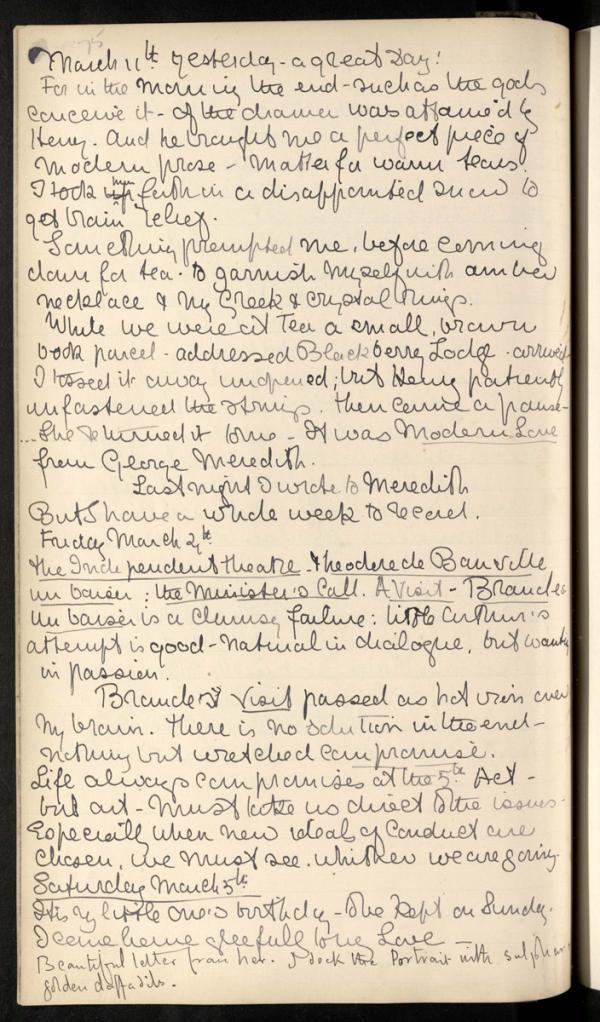 March 11th Yesterday - a great Day!
For in the morning the end - such as the gods
conceive it - of the drama was attained by
Henry. And he brought me a perfect piece of
modern prose - matter for warm tears.
I took my faith in a disappointed snow to
get brain relief.
Something prompted me, before coming
down for tea. to garnish myself with amber
necklace & my Greek & crystal rings.
While we were at Tea a small, brown
book parcel - addressed Blackberry Lodge - arrived.
I tossed it away unopened; but Henry patiently
unfastened the strings. Then came a pause -
... He turned it to me - It was Modern Love
from George Meredith.
Last night I wrote to Meredith
But I have a whole week to record.
Friday March
The Independent theatre - Theodore de Banville
un baiser : the Minister's Call. A Visit - Brandes
un baiser is a clumsy failure: little Arthur's
attempt is good - natural in dialogue, but wanting
in passion.
Brandes' Visit passed as hot iron over
my brain. There is no solution in the end -
nothing but wretched compromise.
Life always compromises at the 5th Act -
but art - must take us direct to the issues -
Especially when new ideals of conduct are
chosen, we must see, whither we are going.
Saturday March 5th
It is my little one's birthday - to be kept on Sunday.
I come home gleefull to my Love -
Beautiful letter from her. I deck the Portrait with
golden daffodils.